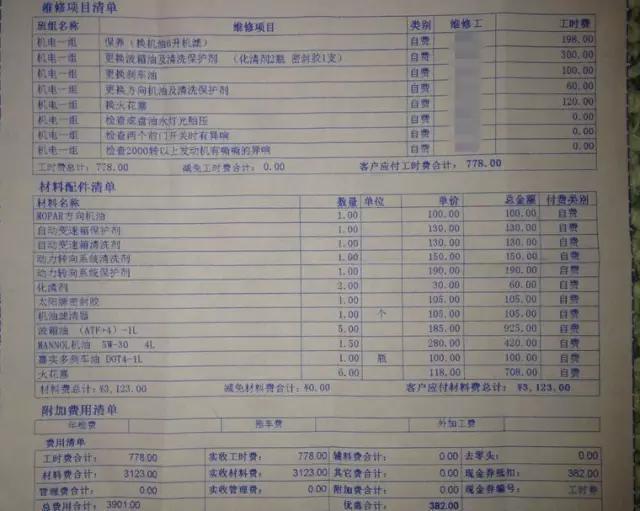 维修项目清单
班组名称 维修项目 类别 维修工 工时费
机电一组 保养（换机油6升机滤） 自费 198.00
机电一组 更换波箱油及清洗保护剂 （化清剂2瓶 密封胶1支） 自费 300.00
机电一组 更换刹车油 自费 100.00
机电一组 更换方向机油及清洗保护剂 自费 60.00
机电一组 换火花塞 自费 120.00
机电一组 检查底盘油水灯光胎压 自费 0.00
机电一组 检查两个前门开关时有异响 自费 0.00
机电一组 检查2000转以上发动机有嗡嗡的异响 自费 0.00
工时费总计：778.00 减免工时费合计：0.00 客户应付工时费合计：778.00
材料配件清单
材料名称 数量 单位 单价 总金额 付费类别
MOPAR方向机油 1.00 100.00 100.00 自费
自动变速箱保护剂 1.00 130.00 130.00 自费
自动变速箱清洗剂 1.00 130.00 130.00 自费
动力转向系统清洗剂 1.00 150.00 150.00 自费
动力转向系统保护剂 1.00 190.00 190.00 自费
化清剂 2.00 30.00 60.00 自费
太阳牌密封胶 1.00 105.00 105.00 自费
机油滤清器 1.00 个 105.00 105.00 自费
波箱油 （ATF+4）-1L 5.00 185.00 925.00 自费
MANNOL机油 5W-30 4L 1.50 280.00 420.00 自费
嘉实多刹车油 DOT4-1L 1.00 瓶 100.00 100.00 自费
火花塞 6.00 118.00 708.00 自费
材料费总计：¥3,123.00 减免材料费合计：¥0.00 客户应付材料费总计：¥3,123.00
附加费用清单
年检费 拖车费 外加工费
费用清单
工时费合计： 778.00 实收工时费： 778.00 辅料费合计： 0.00 去零头： 0.00
材料费合计： 3123.00 实收材料费： 3123.00 其它费合计： 0.00 现金券抵扣： 382.00
管理费合计： 0.00 实收管理费： 0.00 附加费合计： 0.00 现金券编号： 工时券
总费用合计： 3901.00 优惠合计： 382.00